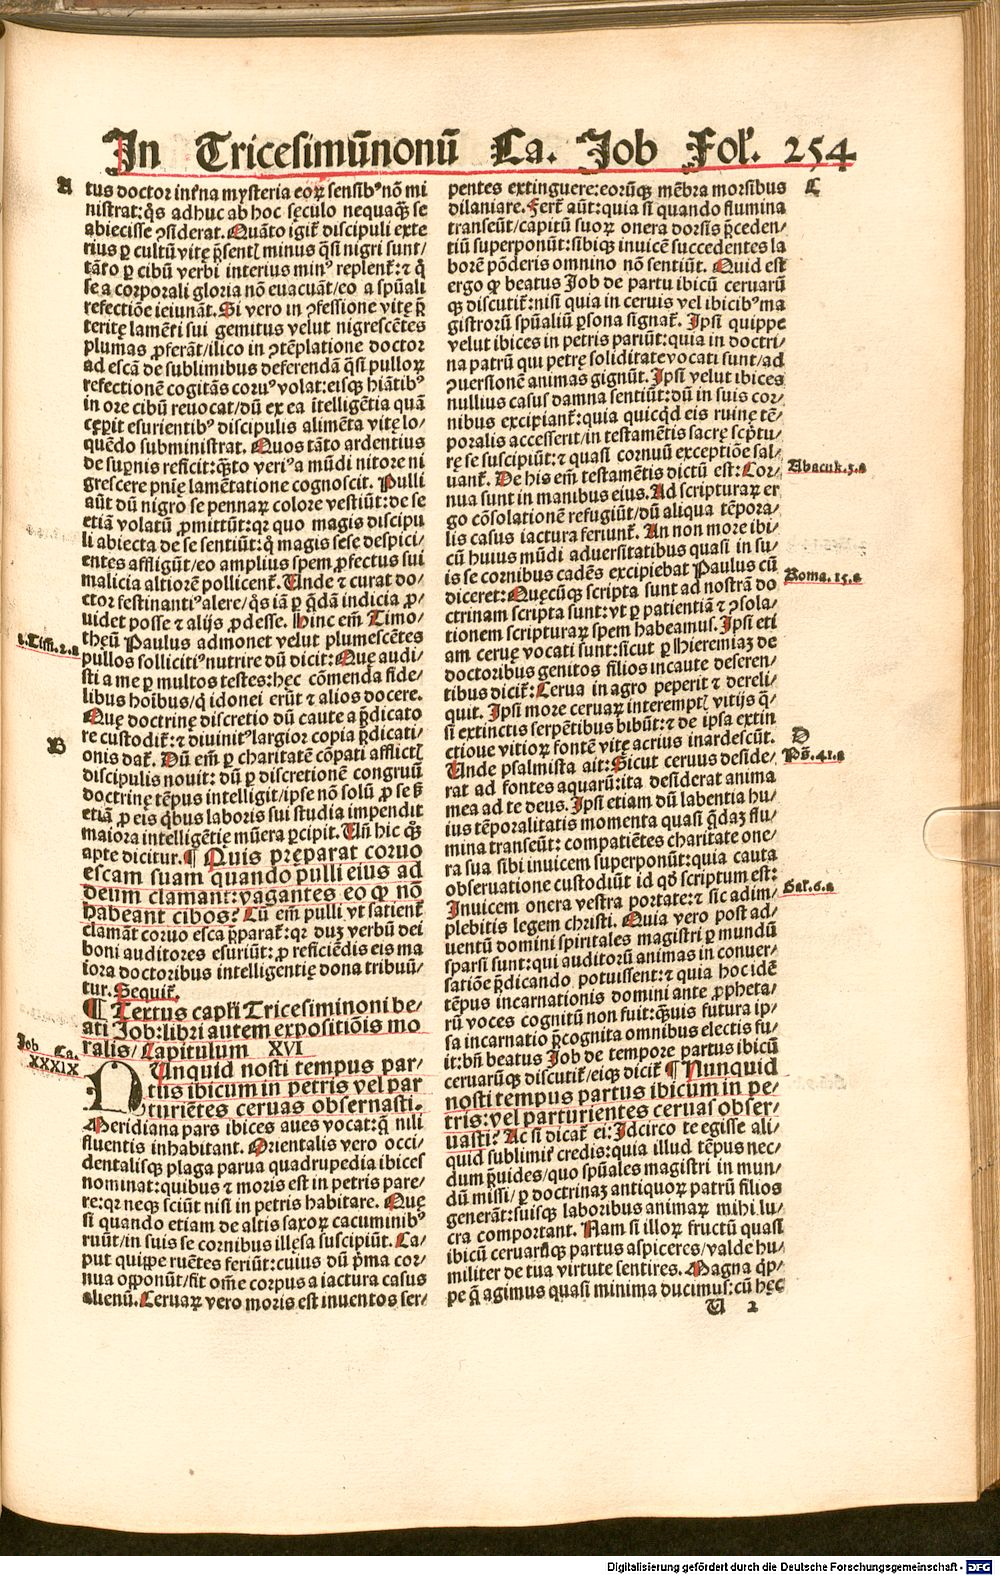 In Tricesimũnonũ Ca. Job Fol'. 254
A
tus doctor inťna mysteria eoꝝ sensibꝰ nõ mi
nistrat: q̃s adhuc ab hoc sęculo nequaq̃ȝ se
abiecisse ꝯsiderat. Quãto igiť discipuli exte
rius ꝑ cultũ vitę p̃sentꝭ minus q̃si nigri sunt/
tãto ꝑ cibũ verbi interius minꝰ replenť: ⁊ q̃
se a corporali gloria nõ euacuãt/eo a spũali
refectiõe ieiunãt. Si vero in ꝯfessione vitę p̃
teritę lamẽti sui gemitus velut nigrescẽtes
plumas ꝓferãt/ilico in ꝯtẽplatione doctor
ad escã de sublimibus deferendã q̃si pulloꝝ
refectionẽ cogitãs coruꝰ volat: eisqȝ hiãtibꝰ
in ore cibũ reuocat/dũ ex ea ĩtelligẽtia quã
cęꝑit esurientibꝰ discipulis alimẽta vitę lo⸗
quẽdo subministrat. Quos tãto ardentius
de suꝑnis reficit: q̃ȝto veriꝰ a mũdi nitore ni
grescere pnĩę lamẽtatione cognoscit. Pulli
aũt dũ nigro se pennaꝝ colore vestiũt: de se
etiã volatũ ꝓmittũt: qꝛ quo magis discipu
li abiecta de se sentiũt: q̃ magis sese despici/
entes affligũt/eo amplius spem ꝓfectus sui
malicia altiorẽ pollicenť. Unde ⁊ curat do/
ctor festinantiꝰ alere/q̃s iã ꝑ q̃dã indicia ꝓ/
uidet posse ⁊ alijs ꝓdesse. Hinc em̃ Timo/
1.Tim̃.2.a
theũ Paulus admonet velut plumescẽtes
pullos sollicitiꝰ nutrire dũ dicit: Quę audi/
sti a me ꝑ multos testes: hęc cõmenda fide/
libus hoĩbus/q̃ idonei erũt ⁊ alios docere.
Quę doctrinę discretio dũ caute a p̃dicato
B
re custodiť: ⁊ diuinitꝰ largior copia p̃dicati/
onis dať. Dũ em̃ ꝑ charitatẽ cõpati afflictꝭ
discipulis nouit: dũ ꝑ discretionẽ congruũ
doctrinę tẽpus intelligit/ipse nõ solũ ꝓ se ß
etiã ꝓ eis q̃bus laboris sui studia impendit
maiora intelligẽtię mũera ꝑcipit. Uñ hic q̃ȝ
apte dicitur. ¶ Quis pręparat coruo
escam suam quando pulli eius ad
deum clamant: vagantes eo ꝙ nõ
habeant cibos? Cũ em̃ pulli vt satienť
clamãt coruo esca p̃parať: qꝛ duȝ verbũ dei
boni auditores esuriũt: ꝓ reficiẽdis eis ma
iora doctoribus intelligentię dona tribuũ/
tur. Sequiť.
¶ Textus capľi Tricesiminoni be/
ati Job: libri autem expositiõis mo
ralis/Capitulum XVI
Job Ca.
XXXIX
NUnquid nosti tempus par/
tus ibicum in petris vel par
turiẽtes ceruas obseruasti.
Meridiana pars ibices aues vocat: q̃ nili
fluentis inhabitant. Orientalis vero occi/
dentalisqȝ plaga parua quadrupedia ibices
nominat: quibus ⁊ moris est in petris pare/
re: qꝛ neqȝ sciũt nisi in petris habitare. Quę
si quando etiam de altis saxoꝝ cacuminibꝰ
ruũt/in suis se cornibus illęsa suscipiũt. Ca/
put quippe ruẽtes feriũt: cuius dũ p̃ma cor/
nua opponũt/fit om̃e corpus a iactura casus
alienũ. Ceruaꝝ vero moris est inuentos ser/
C
pentes extinguere: eorũqȝ mẽbra morsibus
dilaniare. Ferť aũt: quia si quando flumina
transeũt/capitũ suoꝝ onera dorsis p̃ceden/
tiũ superponũt: sibiqȝ inuicẽ succedentes la
borẽ põderis omnino nõ sentiũt. Quid est
ergo ꝙ beatus Job de partu ibicũ ceruarũ
qȝ discutiť: nisi quia in ceruis vel ibicibꝰ ma
gistrorũ spũaliũ ꝑsona signať. Ipsi quippe
velut ibices in petris pariũt: quia in doctri/
na patrũ qui petrę soliditate vocati sunt/ad
ꝯuersionẽ animas gignũt. Ipsi velut ibices
nullius casus damna sentiũt: dũ in suis cor/
nibus excipianť: quia quicq̃d eis ruinę tẽ/
poralis accesserit/in testamẽtis sacrę scp̃tu/
rę se suscipiũt: ⁊ quasi cornuũ exceptiõe sal/
uanť. De his em̃ testamẽtis dictũ est: Cor/
Abacuk.3.a
nua sunt in manibus eius. Ad scripturaꝝ er
go cõsolationẽ refugiũt/dũ aliqua tẽpora/
lis casus iactura feriunť. An non more ibi/
cũ huius mũdi aduersitatibus quasi in su/
is se cornibus cadẽs excipiebat Paulus cũ
Roma.15.a
diceret: Quęcũqȝ scripta sunt ad nostrã do
ctrinam scripta sunt: vt ꝑ patientiã ⁊ ꝯsola/
tionem scripturaꝝ spem habeamus. Ipsi eti
am ceruę vocati sunt: sicut ꝑ Hieremiaȝ de
doctoribus genitos filios incaute deseren/
tibus diciť: Cerua in agro peperit ⁊ dereli/
quit. Ipsi more ceruaꝝ interemptꝭ vitijs q̃/
si extinctis serpẽtibus bibũt: ⁊ de ipsa extin
D
ctione vitioꝝ fontẽ vitę acrius inardescũt.
Ps̃.41.a
Unde psalmista ait: Sicut ceruus deside/
rat ad fontes aquarũ: ita desiderat anima
mea ad te deus. Ipsi etiam dũ labentia hu/
ius tẽporalitatis momenta quasi q̃daȝ flu/
mina transeũt: compatiẽtes charitate one/
ra sua sibi inuicem superponũt: quia cauta
obseruatione custodiũt id qď scriptum est:
Gal'.6.a
Inuicem onera vestra portate: ⁊ sic adim/
plebitis legem christi. Quia vero post ad/
uentũ domini spiritales magistri ꝑ mundũ
sparsi sunt: qui auditorũ animas in conuer/
satiõe p̃dicando potuissent: ⁊ quia hoc idẽ
tẽpus incarnationis domini ante ꝓpheta/
rũ voces cognitũ non fuit: q̃ȝuis futura ip/
sa incarnatio p̃cognita omnibus electis fu/
it: bñ beatus Job de tempore partus ibicũ
ceruarũqȝ discutiť/eiqȝ diciť ¶ Nunquid
nosti tempus partus ibicum in pe/
tris: vel parturientes ceruas obser/
uasti? Ac si dicať ei: Idcirco te egisse ali/
quid sublimiť credis: quia illud tẽpus nec/
dum p̃uides/quo spũales magistri in mun/
dũ missi/ꝑ doctrinaȝ antiquoꝝ patrũ filios
generãt: suisqȝ laboribus animaꝝ mihi lu/
cra comportant. Nam si illoꝝ fructũ quasi
ibicũ ceruarũqȝ partus aspiceres/valde hu/
militer de tua virtute sentires. Magna q̃p/
pe q̃ agimus quasi minima ducimus: cũ hęc
U 2
Digitalisierung gefördert durch die Deutsche Forschungsgemeinschaft - DFG